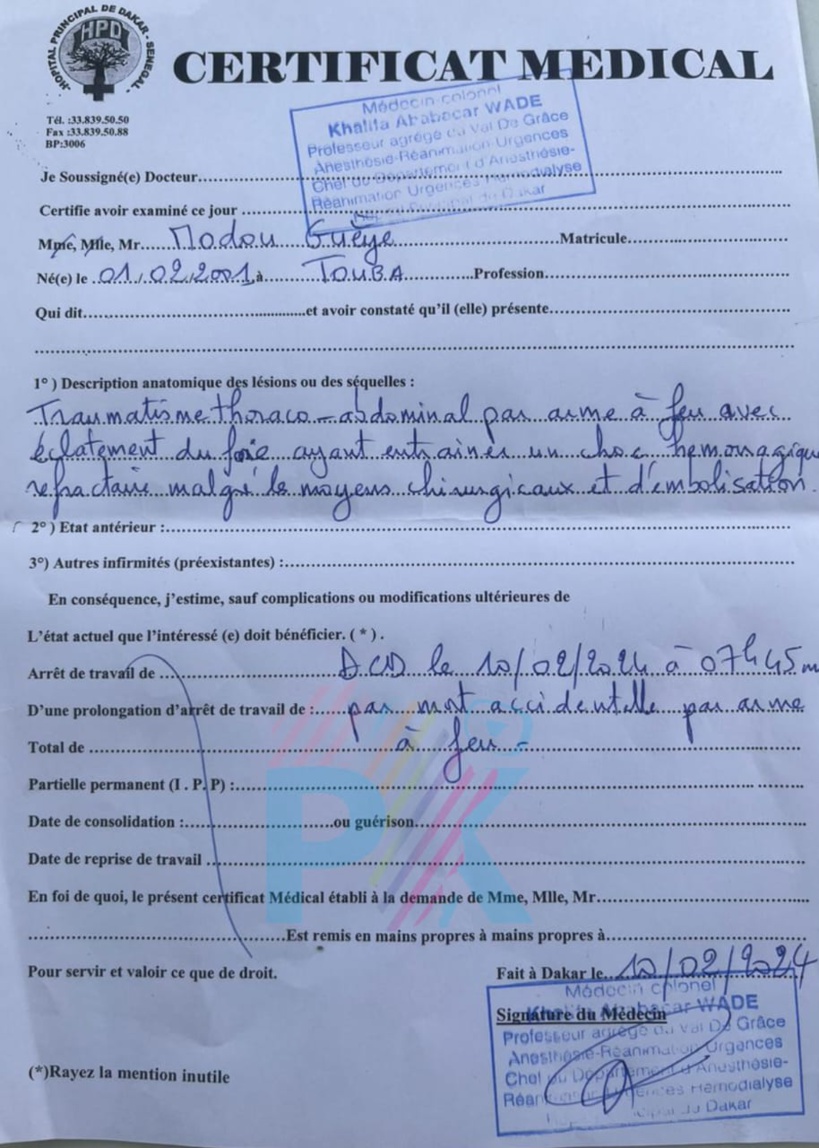 HOPITAL PRINCIPAL DE DAKAR - SENEGAL
HPD
CERTIFICAT MEDICAL
Tél. :33.839.50.50
Fax :33.839.50.88
BP:3006
Médecin-colonel
Khalifa Ababacar WADE
Professeur agrégé du Val De Grâce
Anesthésie-Réanimation Urgences
Chef du Département d'Anesthésie-
Réanimation Urgences Hémodialyse
Dakar
Je Soussigné(e) Docteur
Certifie avoir examiné ce jour
Mme, Mlle, Mr. Modou Guèye Matricule
Né(e) le 01/02/2001 à TOUBA Profession
Qui dit et avoir constaté qu'il (elle) présente
1° ) Description anatomique des lésions ou des séquelles :
Traumatisme thoraco-abdominal par arme à feu avec
éclatement du foie ayant entrainer un choc hemorragique
refractaire malgré les moyens chirurgicaux et d'embolisation.
2° ) Etat antérieur :
3°) Autres infirmités (préexistantes) :
En conséquence, j'estime, sauf complications ou modifications ultérieures de
L'état actuel que l'intéressé (e) doit bénéficier. ( * ) .
Arrêt de travail de DCD le 10/02/2024 à 07h45m
D'une prolongation d'arrêt de travail de : par mort accidentelle par arme
Total de à feu -
Partielle permanent (I . P. P) :
Date de consolidation : ou guérison
Date de reprise de travail
PK
En foi de quoi, le présent certificat Médical établi à la demande de Mme, Mlle, Mr
Est remis en mains propres à mains propres à
Pour servir et valoir ce que de droit. Fait à Dakar le 10/02/2024
Signature du Médecin
Médecin colonel
Khalifa Ababacar WADE
Professeur agrégé du Val De Grâce
Anesthésie-Réanimation Urgences
Chef du Département d'Anesthésie-
Réanimation Urgences Hémodialyse
Dakar
(*)Rayez la mention inutile